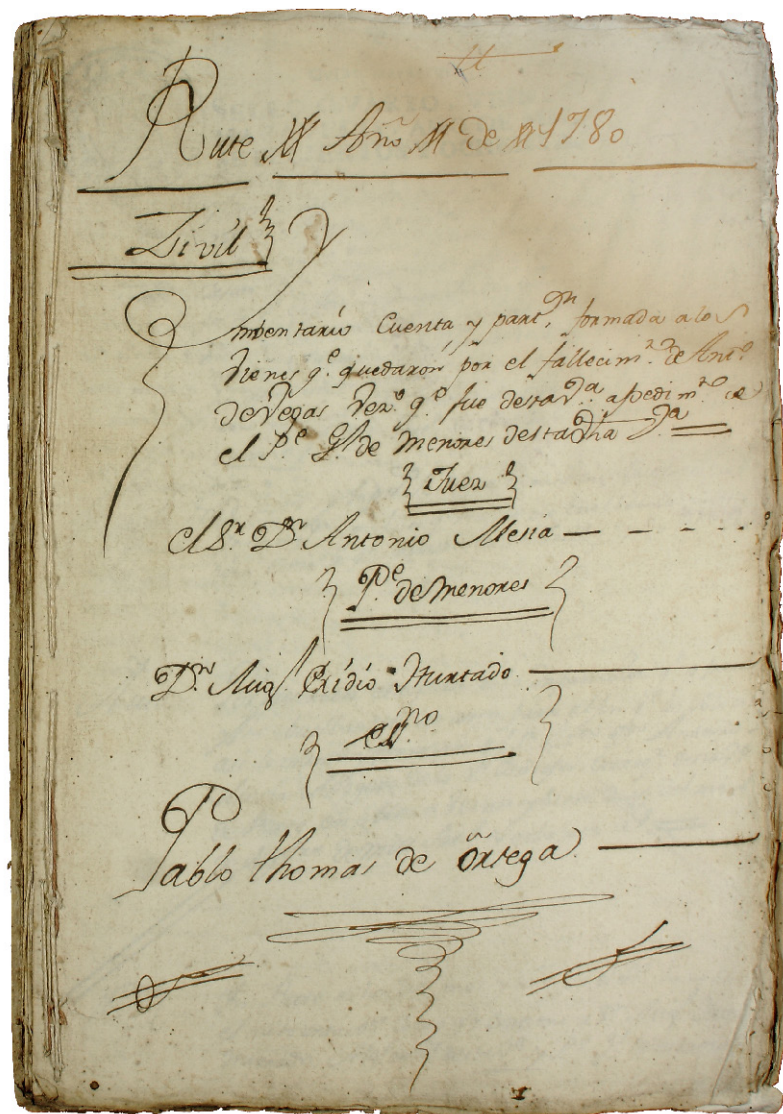 Rute Año de 1780
Zivil
Ynventario Cuenta y part.on formada a los
vienes q.e quedaron por el fallecim.to de Ant.o
de Vegas Vez.o q.e fue desta V.a a pedim.to de
el P.e G.l de Menores desta dha V.a
Juez
El S.r D.n Antonio Mesia
P.e de Menores
D.n Mig.l Hurtado
Es.no
Pablo Thomas de Ortega